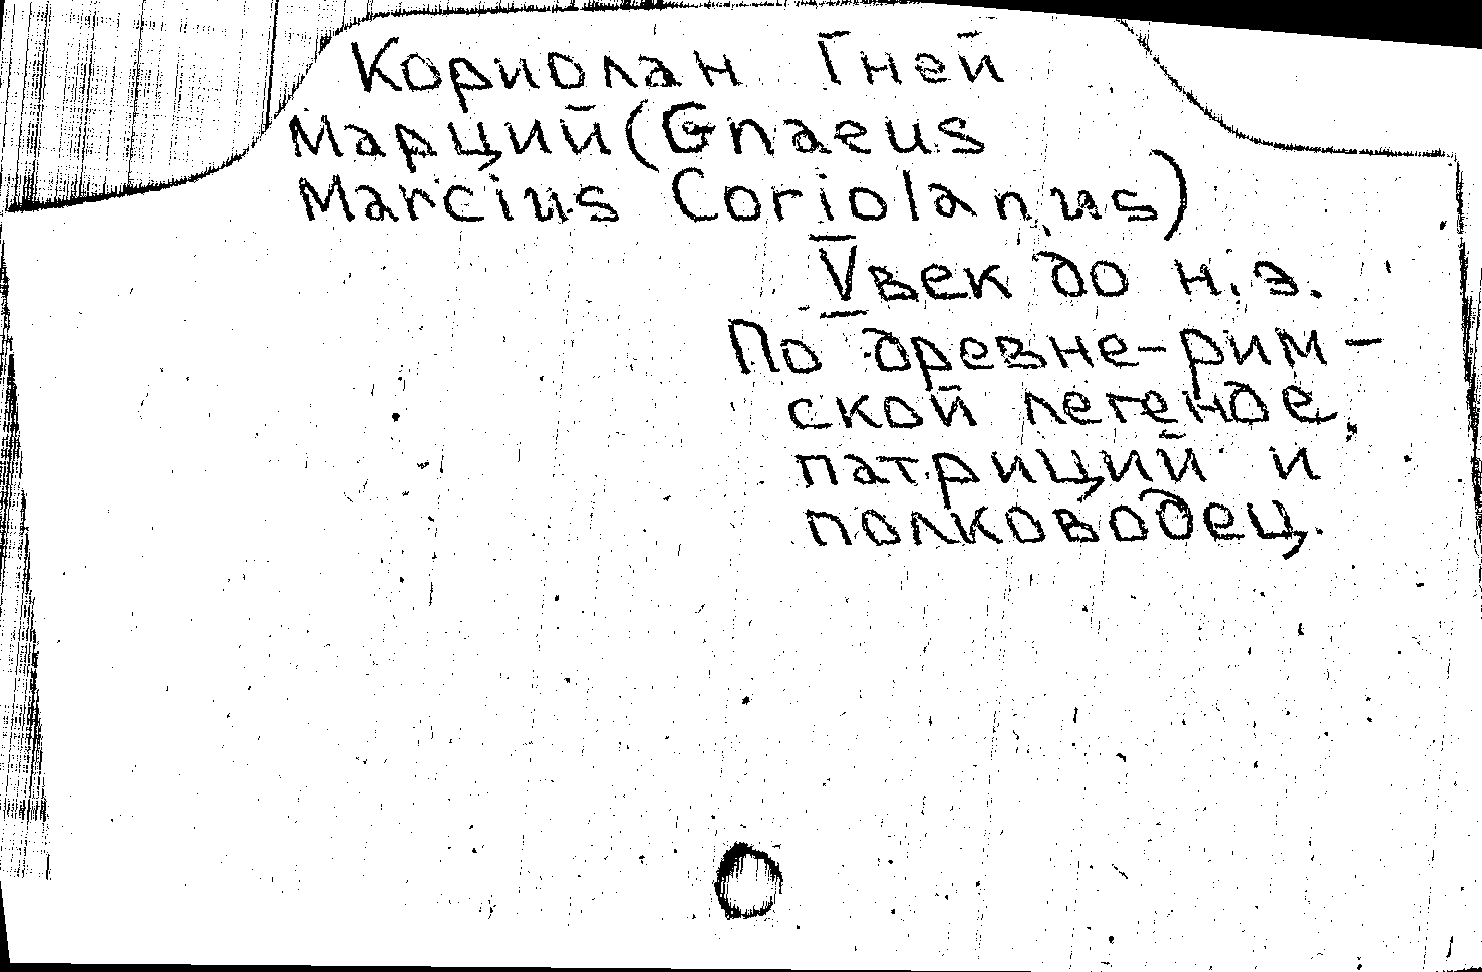 Кориолан Гней
Марций (Gnaeus
Marcius Coriolanus)
V век до н.э.
По древне-рим-
ской легенде,
патриций и
полководец.